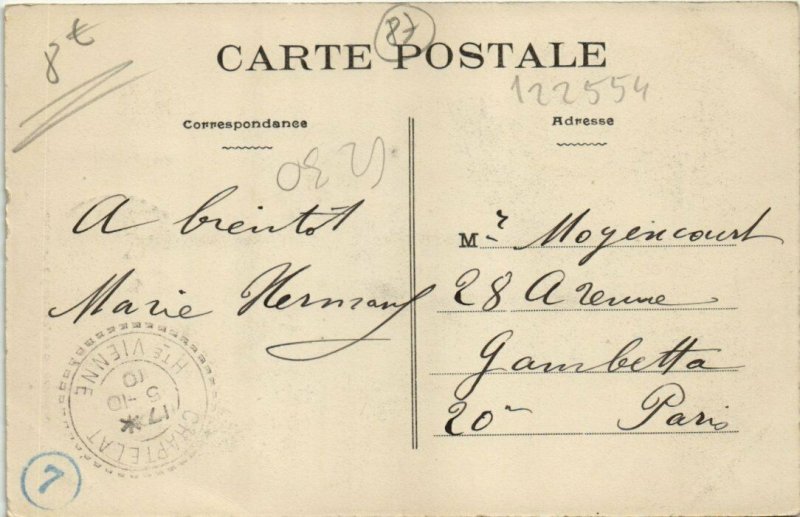 8€
87
CARTE POSTALE
122554
Correspondance
Adresse
A bientot
Marie Hermany
Mr Moyencourt
28 Avenue
Gambetta
20e Paris
CHAPTELAT
HTE VIENNE
17 *
5 -10
10
7